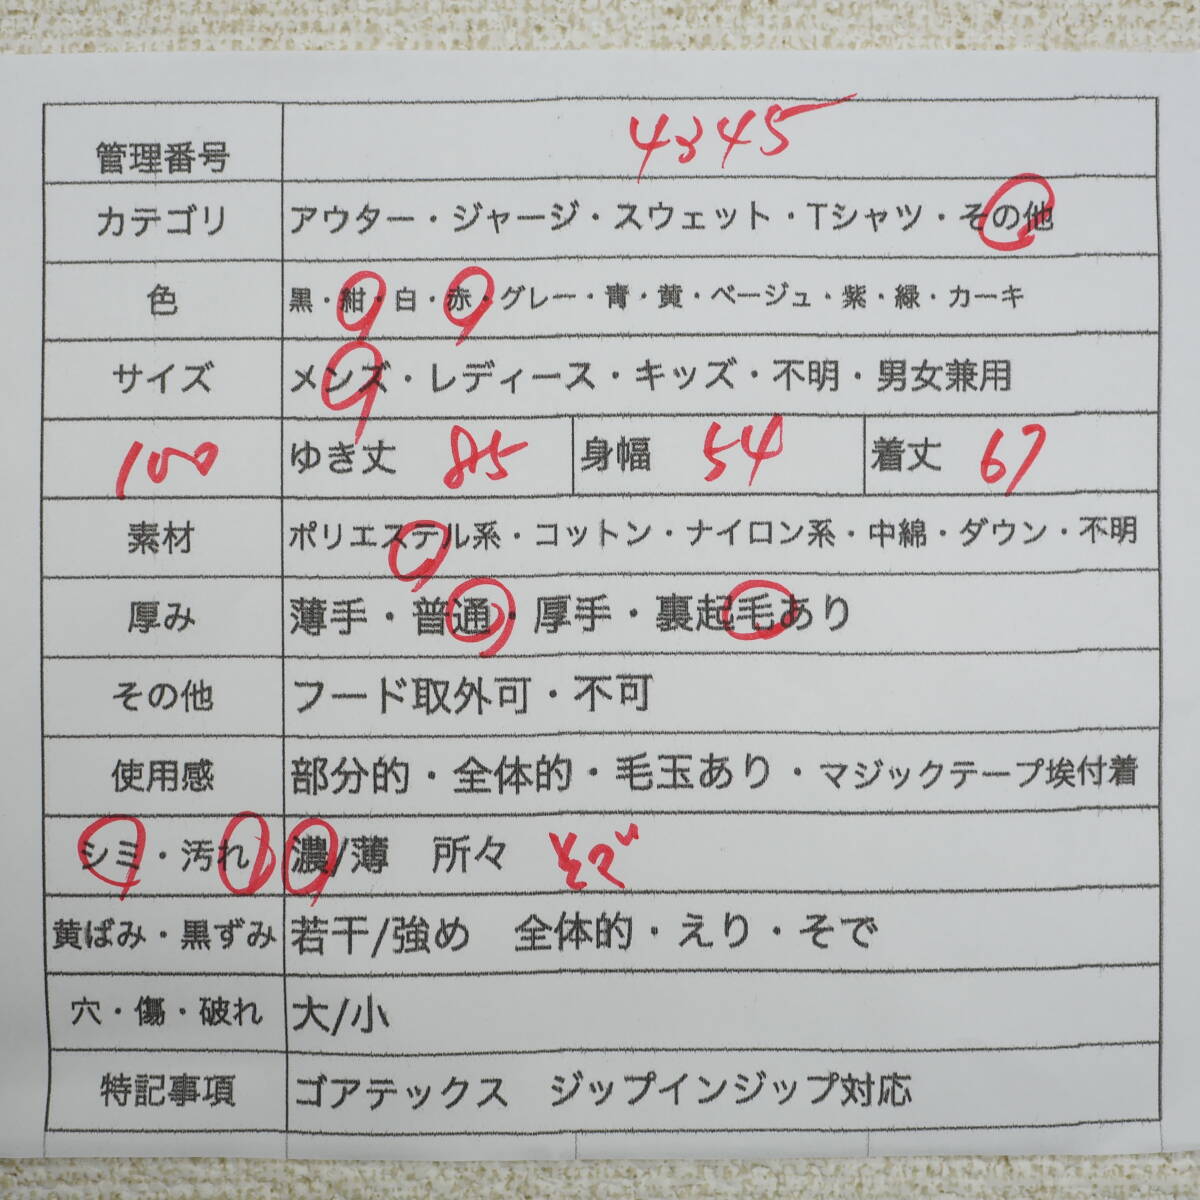 管理番号 4345
カテゴリ アウター・ジャージ・スウェット・Tシャツ・その他
色 黒・紺・白・赤・グレー・青・黄・ベージュ・紫・緑・カーキ
サイズ メンズ・レディース・キッズ・不明・男女兼用
100 ゆき丈 85 身幅 54 着丈 67
素材 ポリエステル系・コットン・ナイロン系・中綿・ダウン・不明
厚み 薄手・普通・厚手・裏起毛あり
その他 フード取外可・不可
使用感 部分的・全体的・毛玉あり・マジックテープ埃付着
シミ・汚れ 濃/薄 所々 そで
黄ばみ・黒ずみ 若干/強め 全体的・えり・そで
穴・傷・破れ 大/小
特記事項 ゴアテックス ジップインジップ対応